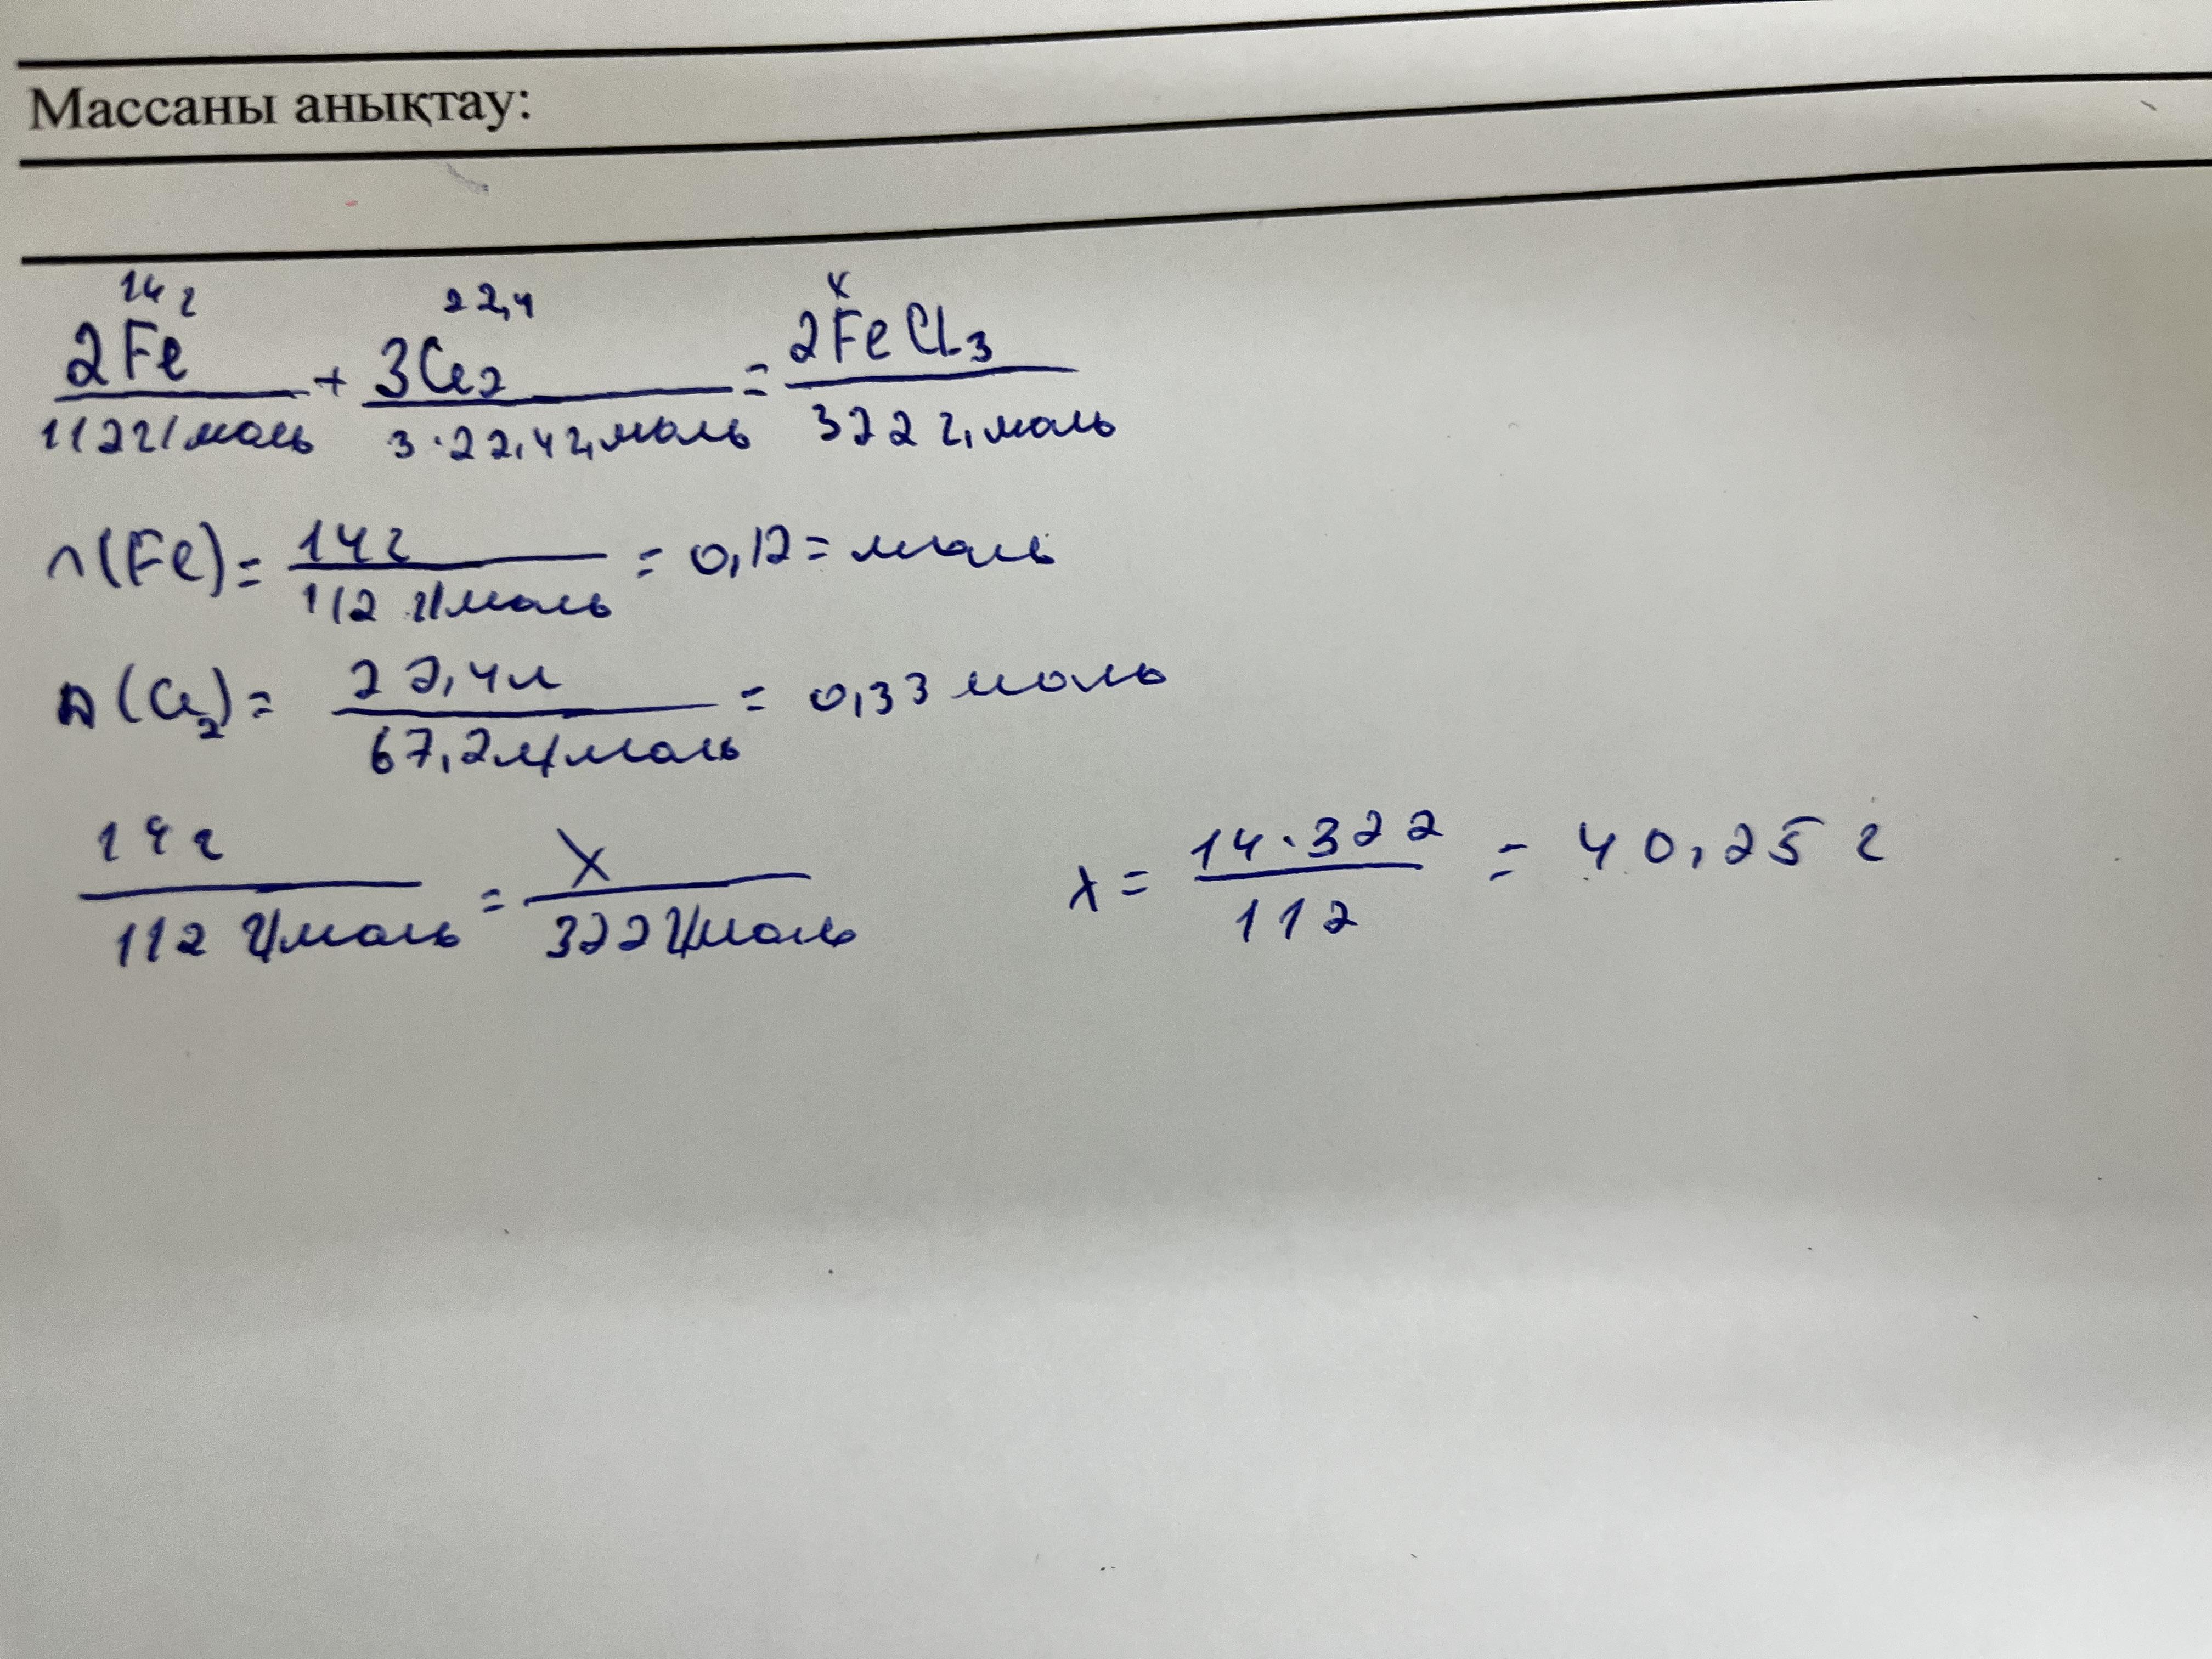 Массаны анықтау:
14 г 22,4 x
2Fe + 3Cl2 = 2FeCl3
112 г/моль 3·22,4 г/моль 322 г/моль
n(Fe) = 14 г / 112 г/моль = 0,12 = моль
n(Cl2) = 22,4 л / 67,2 л/моль = 0,33 моль
14 г / 112 г/моль = X / 322 г/моль x = 14·322 / 112 = 40,25 г